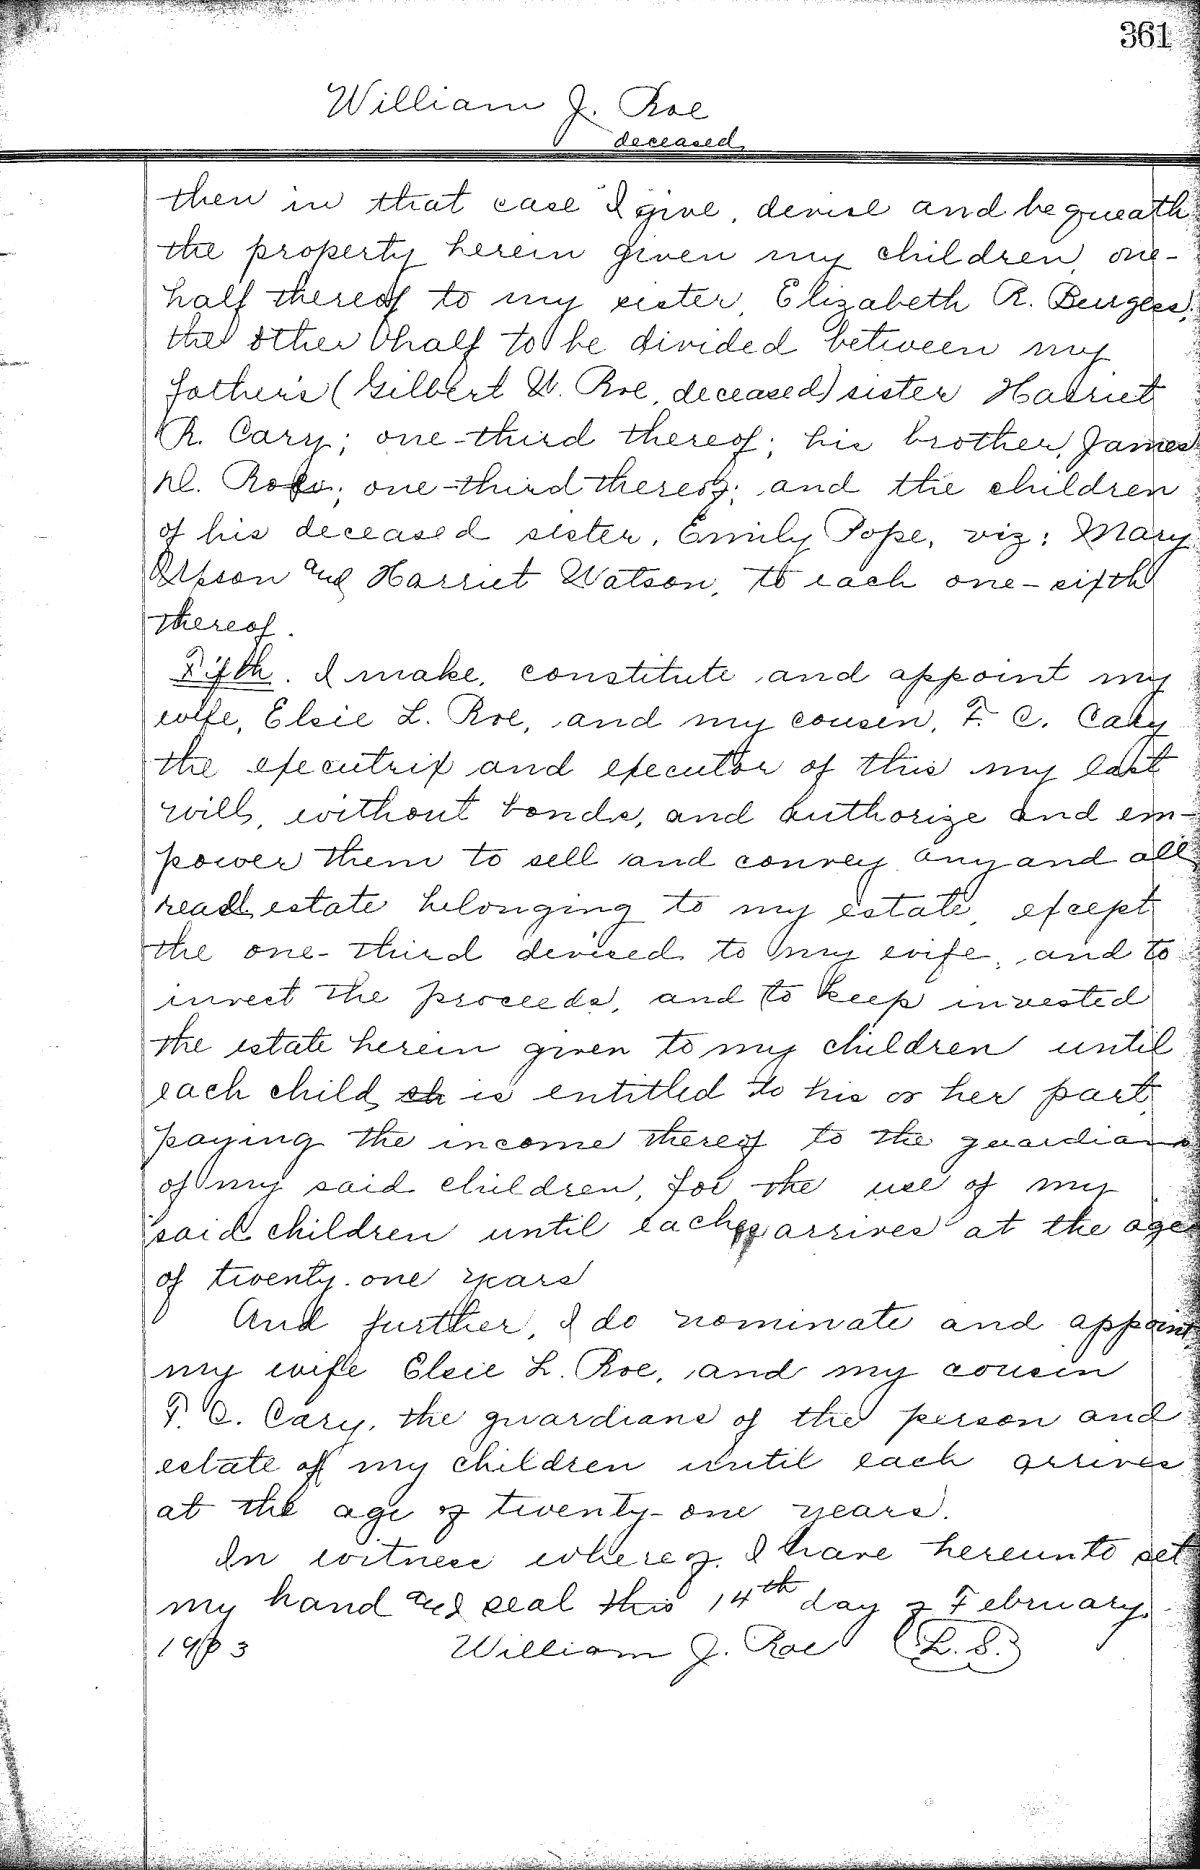 361
William J. Roe
deceased
then in that case I give, devise and bequeath
the property herein given my children, one-
half thereof to my sister, Elizabeth R. Burgess;
the other half to be divided between my
father's (Gilbert W. Roe, deceased) sister Harriet
R. Cary; one-third thereof; his brother, James
D. Roe; one-third thereof; and the children
of his deceased sister, Emily Pope, viz: Mary
and Harriet Watson, to each one-sixth
thereof.
Fifth. I make, constitute and appoint my
wife, Elsie L. Roe, and my cousin, F. C. Cary
the executrix and executor of this my last
will, without bonds, and authorize and em-
power them to sell and convey any and all
real estate belonging to my estate, except
the one-third devised to my wife, and to
invest the proceeds, and to keep invested
the estate herein given to my children until
each child sh is entitled to his or her part,
paying the income thereof to the guardians
of my said children, for the use of my
said children until each arrives at the age
of twenty-one years
And further, I do nominate and appoint
my wife Elsie L. Roe, and my cousin
F. C. Cary, the guardians of the person and
estate of my children until each arrives
at the age of twenty-one years.
In witness whereof I have hereunto set
my hand and seal this 14th day of February,
1903 William J. Roe (L. S.)